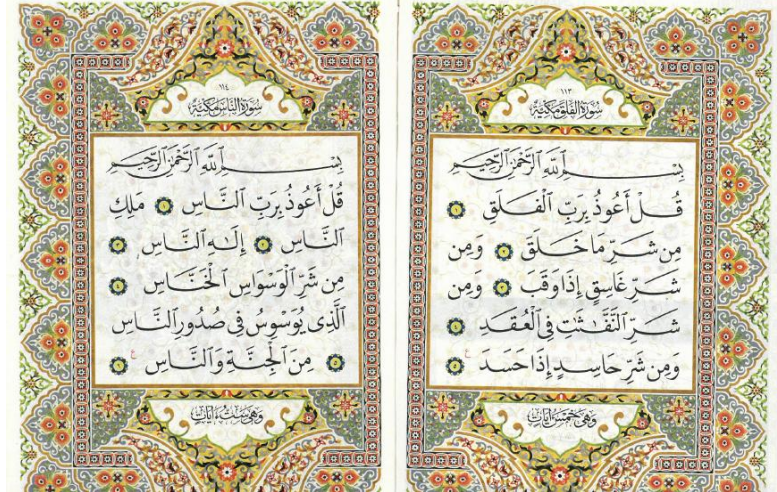 ١١٣
سُورَةُ الْفَلَقِ مَكِّيَّةٌ
بِسْمِ ٱللَّهِ ٱلرَّحْمَٰنِ ٱلرَّحِيمِ
قُلْ أَعُوذُ بِرَبِّ ٱلْفَلَقِ ١
مِن شَرِّ مَا خَلَقَ ٢ وَمِن
شَرِّ غَاسِقٍ إِذَا وَقَبَ ٣ وَمِن
شَرِّ ٱلنَّفَّٰثَٰتِ فِى ٱلْعُقَدِ ٤
وَمِن شَرِّ حَاسِدٍ إِذَا حَسَدَ ٥
وَهِيَ خَمْسُ آيَاتٍ
١١٤
سُورَةُ النَّاسِ مَكِّيَّةٌ
بِسْمِ ٱللَّهِ ٱلرَّحْمَٰنِ ٱلرَّحِيمِ
قُلْ أَعُوذُ بِرَبِّ ٱلنَّاسِ ١ مَلِكِ
ٱلنَّاسِ ٢ إِلَٰهِ ٱلنَّاسِ ٣
مِن شَرِّ ٱلْوَسْوَاسِ ٱلْخَنَّاسِ ٤
ٱلَّذِى يُوَسْوِسُ فِى صُدُورِ ٱلنَّاسِ
٥ مِنَ ٱلْجِنَّةِ وَٱلنَّاسِ ٦
وَهِيَ سِتُّ آيَاتٍ